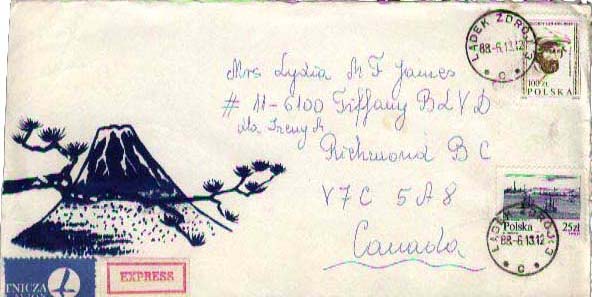 LĄDEK ZDRÓJ 3
88-6.13.12
C
100 ZŁ
POLSKA
Mrs Lydia M F James
# 11-6100 Tiffany BLVD
dla Ireny
Richmond B C
V7C 5A8
Canada
Polska
25zł
LĄDEK ZDRÓJ 3
88-6.13.12
C
TNICZA
EXPRESS